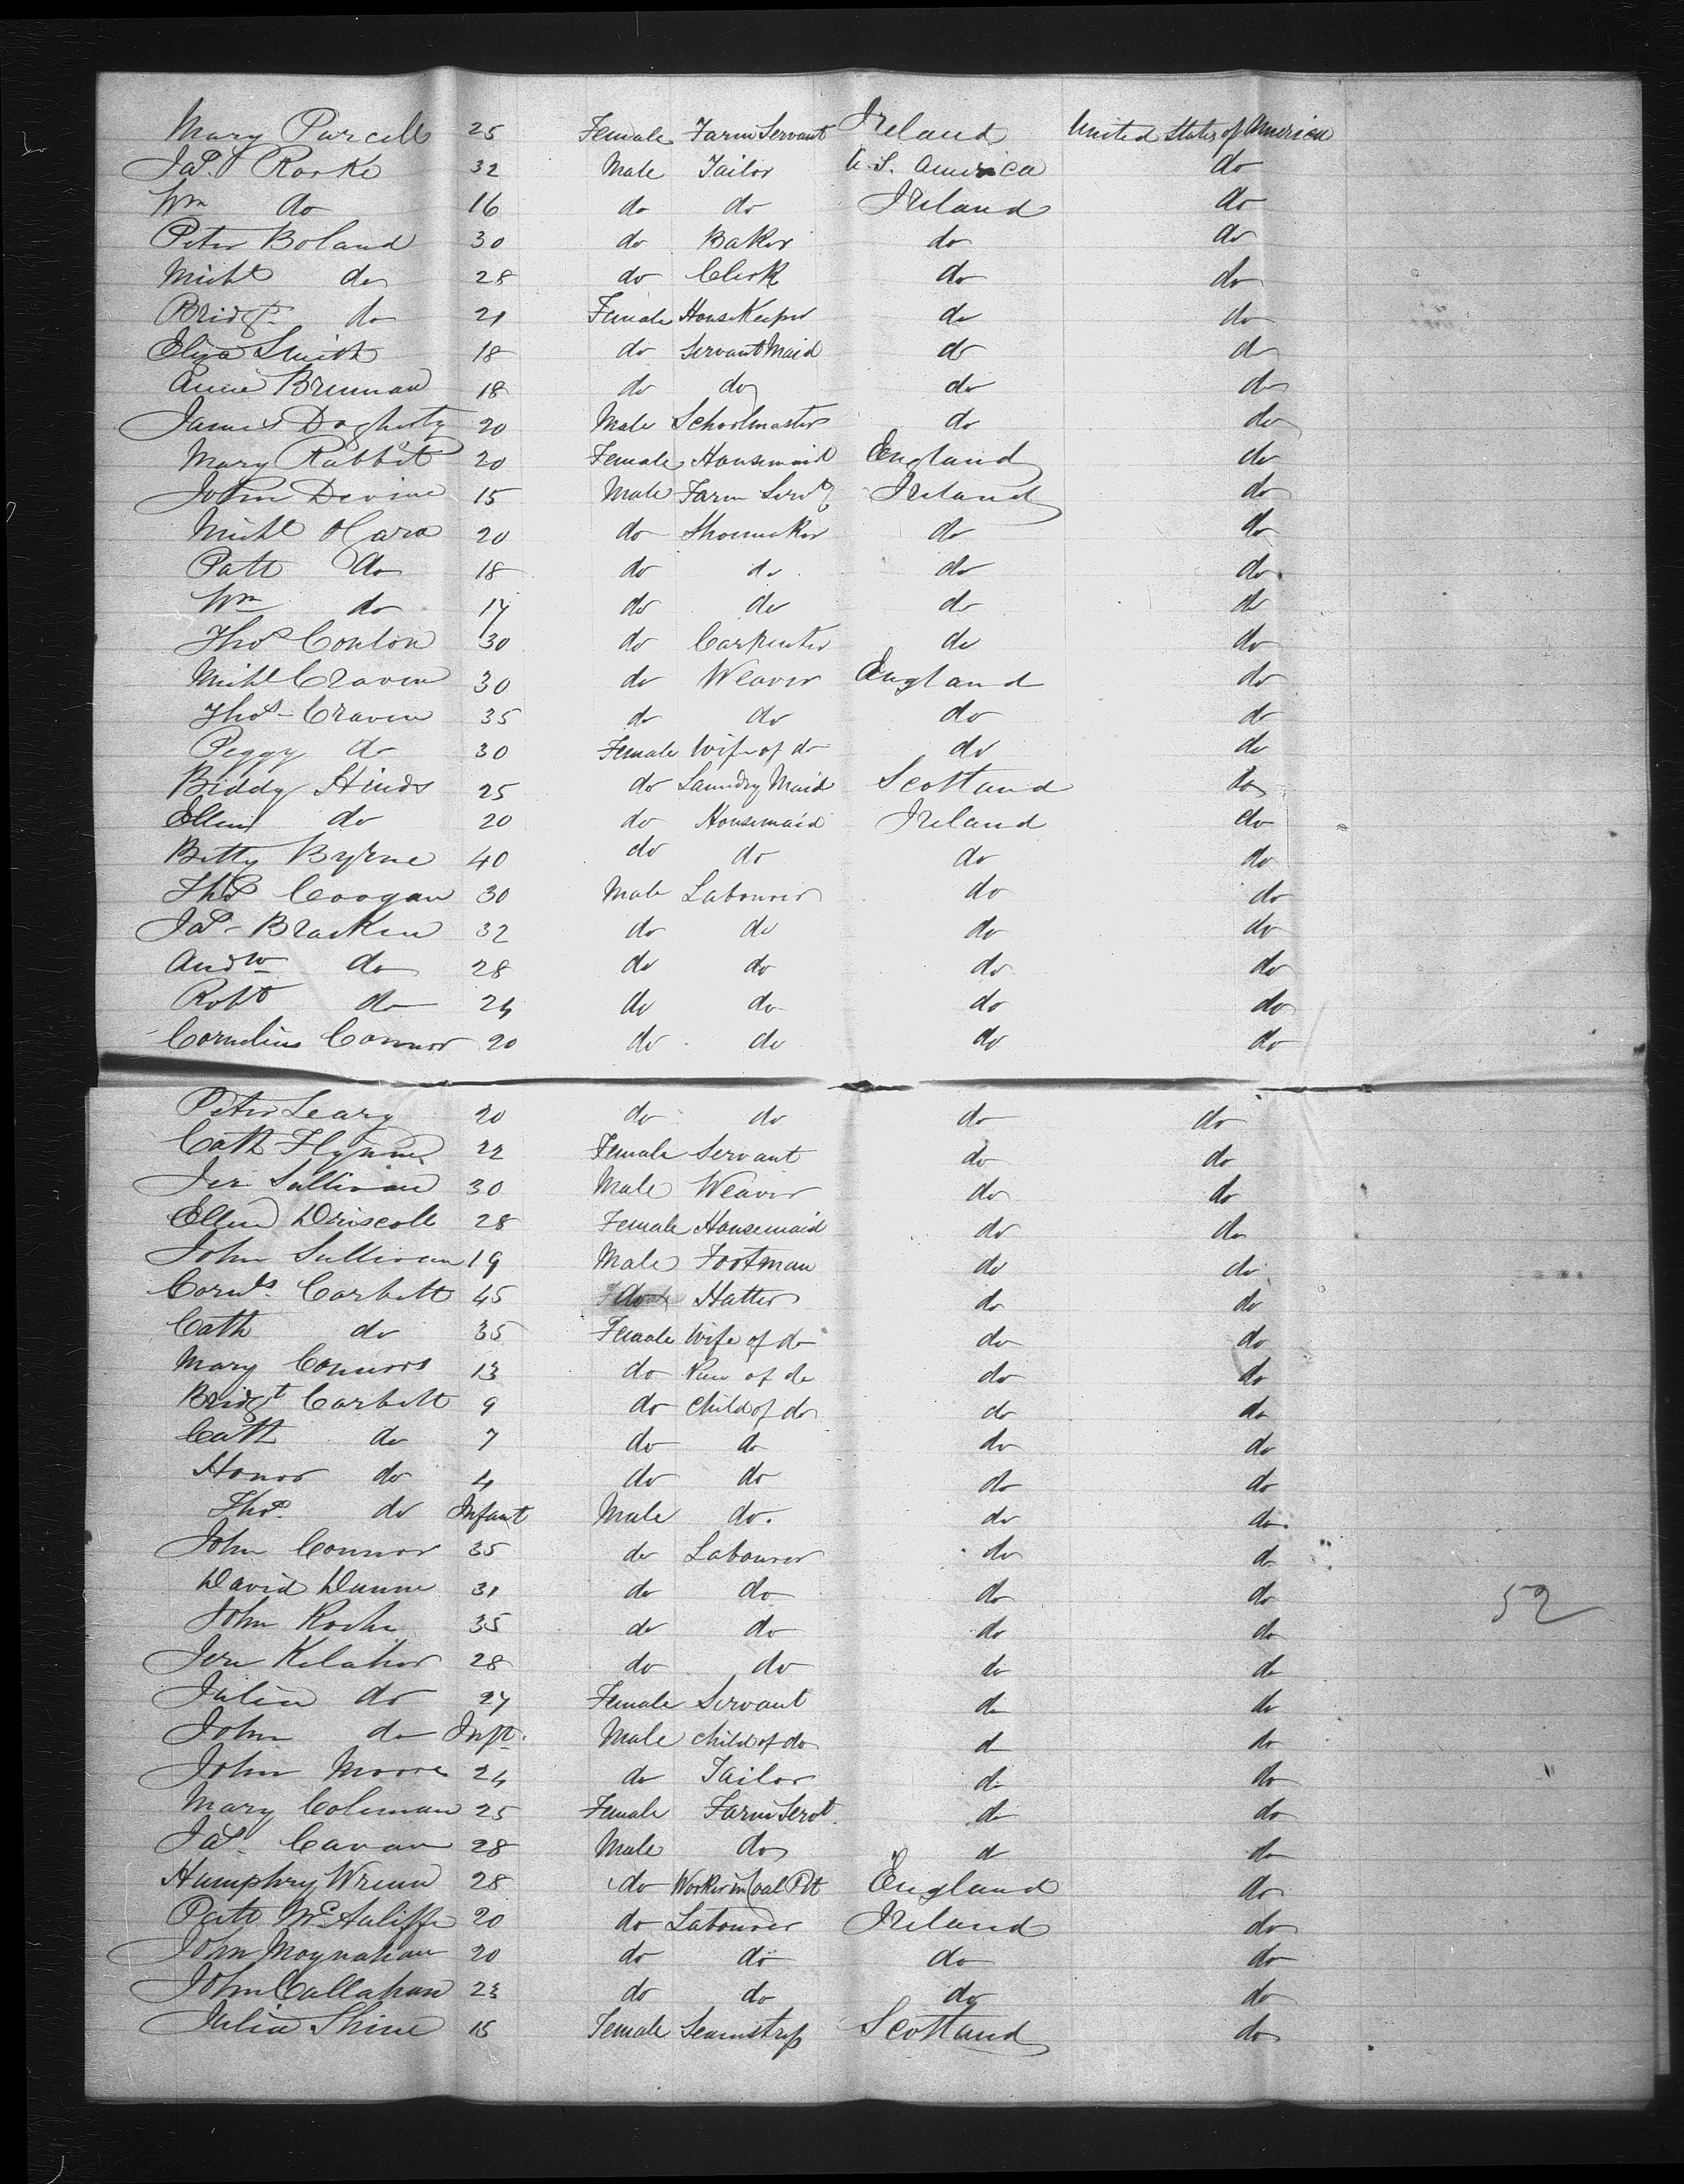 Mary Purcell 25 Female Farm Servant Ireland United States of America
Jas. Rorke 32 Male Tailor U.S. America do
Wm do 16 do do Ireland do
Peter Boland 30 do Baker do do
Michl do 28 do Clerk do do
Bridgt do 21 Female House Keeper do do
Eliza Smith 18 do Servant Maid do do
Anne Brennan 18 do do do do
James Dogherty 20 Male Schoolmaster do do
Mary Rabbit 20 Female Housemaid England do
John Devine 15 Male Farm Servt Ireland do
Michl OHara 20 do Shoemaker do do
Patt do 18 do do do do
Wm do 17 do do do do
Thos Conlon 30 do Carpenter do do
Michl Craven 30 do Weaver England do
Thos Craven 35 do do do do
Peggy do 30 Female Wife of do do do
Biddy Hinds 25 do Laundry Maid Scotland do
Ellen do 20 do Housemaid Ireland do
Betty Byrne 40 do do do do
Ths Coogan 30 Male Labourer do do
Jas Bracken 32 do do do do
Andw do 28 do do do do
Robt do 24 do do do do
Cornelius Connor 20 do do do do
Peter Leary 20 do do do do
Cath Flynn 22 Female Servant do do
Jer Sullivan 30 Male Weaver do do
Ellen Driscoll 28 Female Housemaid do do
John Sullivan 19 Male Footman do do
Cornls Corbett 45 do Hatter do do
Cath do 35 Female Wife of do do do
Mary Connors 13 do of do do do
Bridgt Corbett 9 do Child of do do do
Cath do 7 do do do do
Honor do 4 do do do do
Thos. do Infant Male do. do do
John Connor 35 do Labourer do do
David Dunne 31 do do do do
John Roche 35 do do do do
52
Jere Kelaher 28 do do do do
Julia do 27 Female Servant do do
John do Inft. Male Child of do do do
John Moore 24 do Tailor do do
Mary Coleman 25 Female Farm Servt. do do
Jas. Cavan 28 Male do do do
Humphry Wrenn 28 do Worker in Coal Pit England do
Patt McAuliffe 20 do Labourer Ireland do
John Moynahan 20 do do do do
John Callahan 23 do do do do
Julia Shine 15 Female Seamstress Scotland do